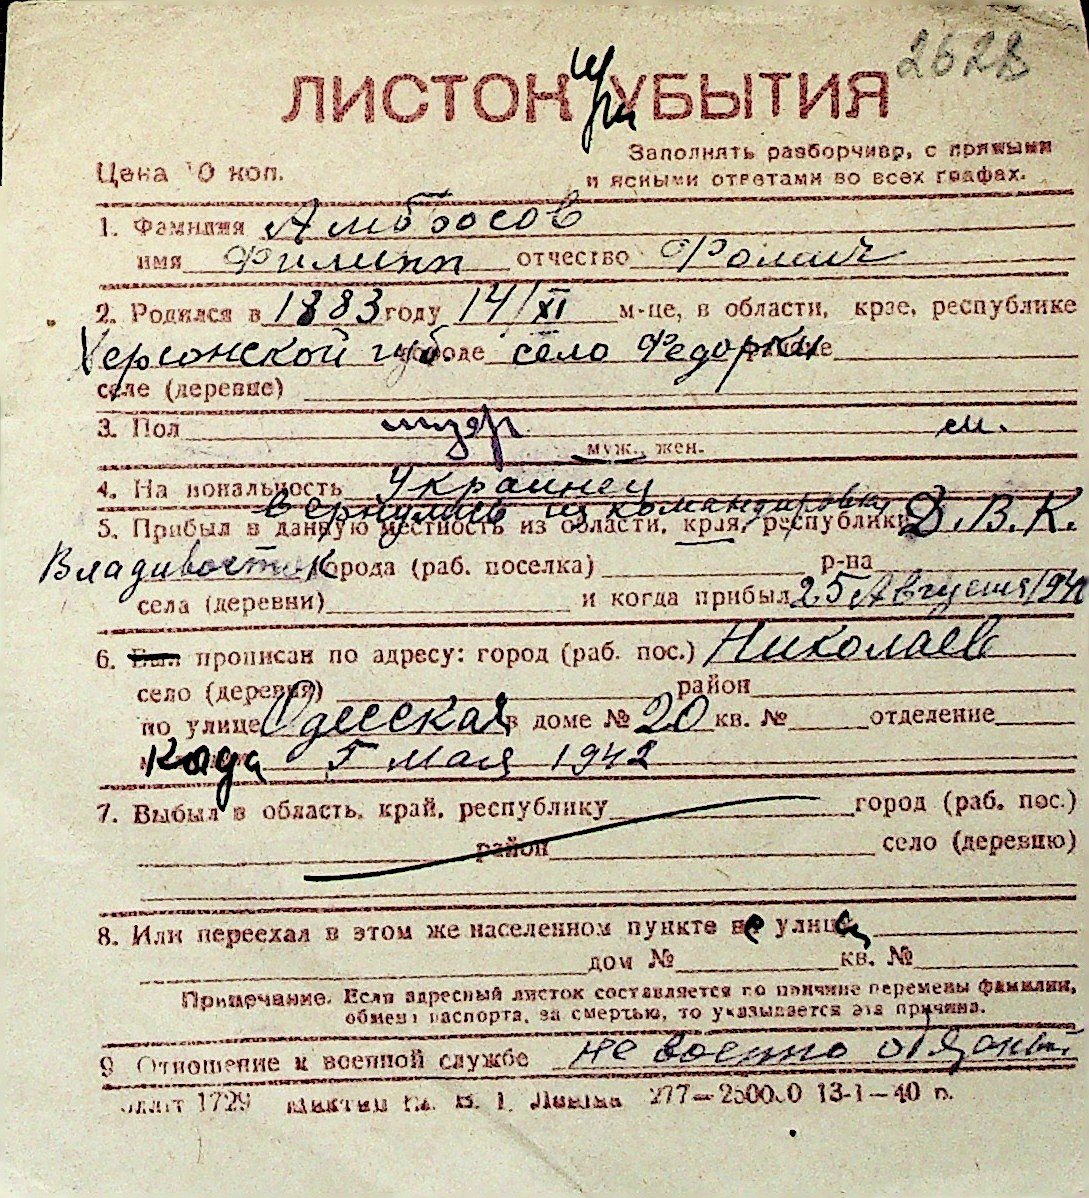 262в
ЛИСТОК при УБЫТИЯ
Заполнять разборчиво, с прямыми
Цена 10 коп.
и ясными ответами во всех графах.
1. Фамилия Амбросов
имя Филипп отчество Фомич
2. Родился в 1883 году 14/XI м-це, в области, крае, республике
Херсонской губ. городе село Федорки районе
селе (деревне)
3. Пол м.
муж., жен.
4. Национальность Украинец
вернулся из командировки
5. Прибыл в данную местность из области, края, республики Д.В.К.
Владивосток города (раб. поселка) р-на
села (деревни) и когда прибыл 25 Августа 194
6. Был прописан по адресу: город (раб. пос.) Николаев
село (деревня) район
по улице Одесская в доме № 20 кв. № отделение
кода 5 мая 1942
7. Выбыл в область, край, республику город (раб. пос.)
район село (деревню)
8. Или переехал в этом же населенном пункте не улица
дом № кв. №
Примечание. Если адресный листок составляется по причине перемены фамилии,
обмена паспорта, за смертью, то указывается эта причина.
9 Отношение к военной службе не военно обязан.
1729 Ленина 277—250000 13-1—40 г.